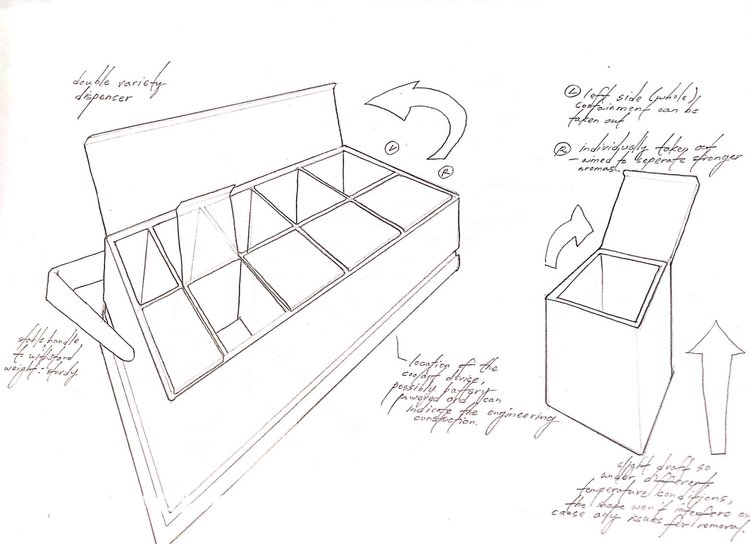 double variety
dispenser
Ⓛ left side (whole),
containment can be
taken out
Ⓡ individually taken out
- aimed to seperate stronger
aromas.
Ⓛ
Ⓡ
stable handle
to withstand
weight: sturdy
location of the
coolant device,
possibly battery
powered and can
indicate the engineering
slight draft so
under different
temperature conditions,
the shape won't interfere or
cause any issues for removal.